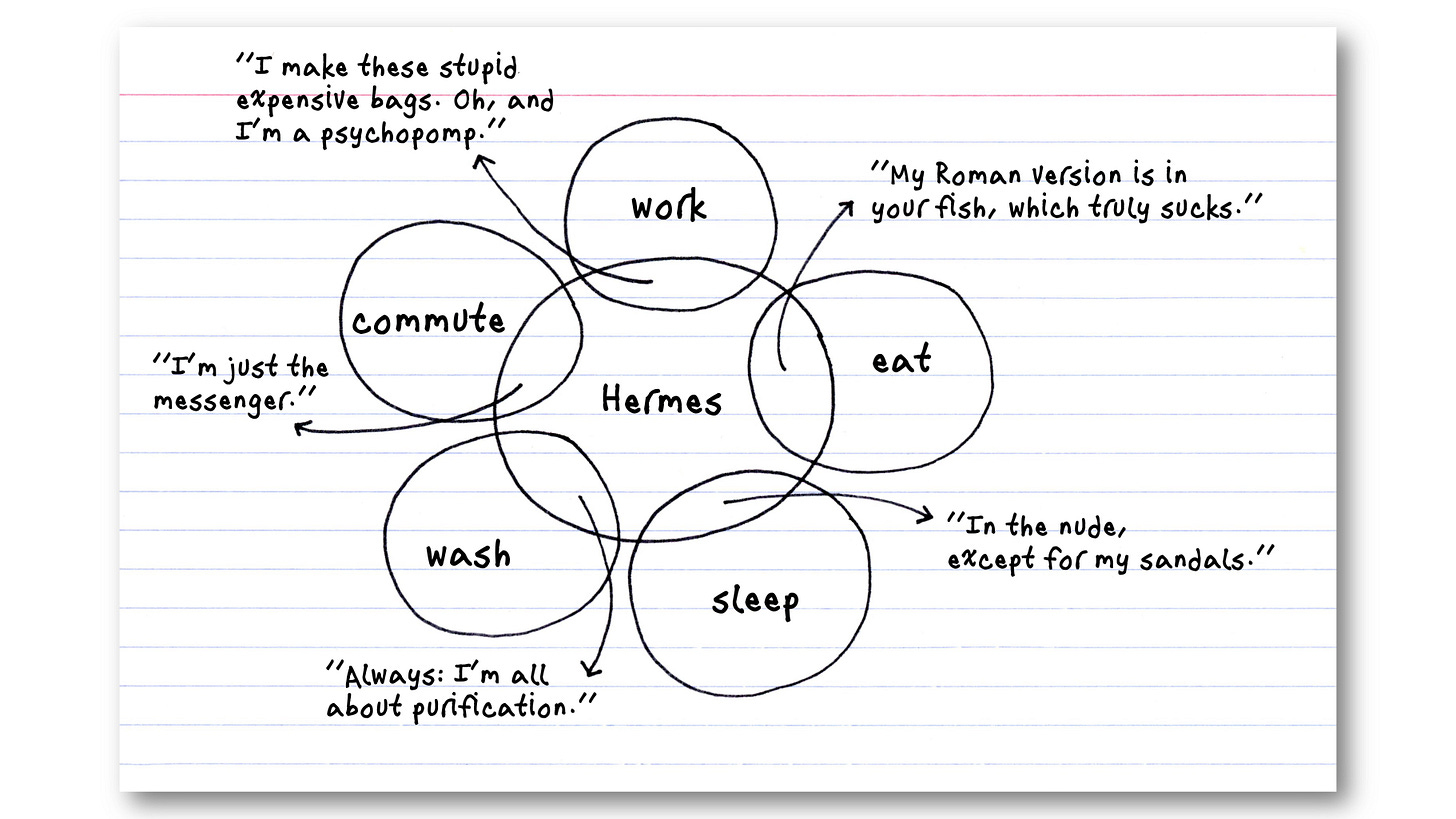 "I make these stupid
expensive bags. Oh, and
I'm a psychopomp."
work
"My Roman version is in
your fish, which truly sucks."
commute
eat
"I'm just the
messenger."
Hermes
wash
"In the nude,
except for my sandals."
sleep
"Always: I'm all
about purification."